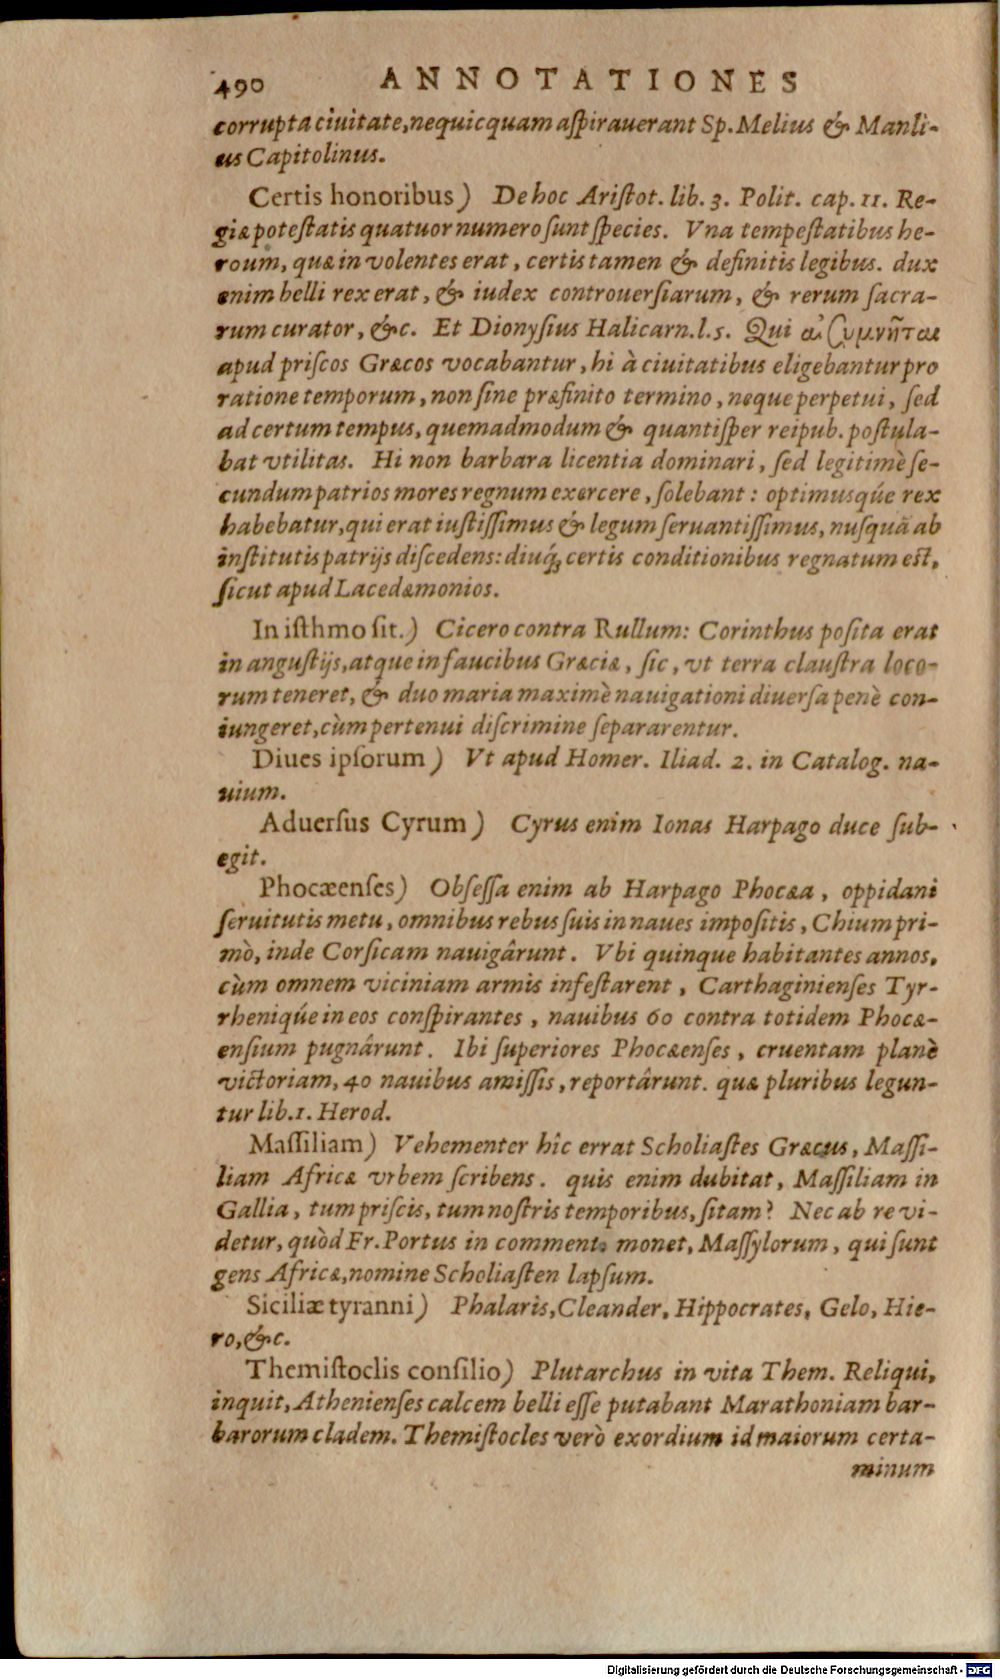 490 ANNOTATIONES
corrupta ciuitate, nequicquam aſpirauerant Sp. Melius & Manli-
us Capitolinus.
Certis honoribus) De hoc Ariſtot. lib. 3. Polit. cap. 11. Re-
giæ poteſtatis quatuor numero ſunt ſpecies. Vna tempeſtatibus he-
roum, quæ in volentes erat, certis tamen & definitis legibus. dux
enim belli rex erat, & iudex controuerſiarum, & rerum ſacra-
rum curator, &c. Et Dionyſius Halicarn. l. 5. Qui αἰσυμνῆται
apud priſcos Græcos vocabantur, hi à ciuitatibus eligebantur pro
ratione temporum, non ſine præfinito termino, neque perpetui, ſed
ad certum tempus, quemadmodum & quantiſper reipub. poſtula-
bat vtilitas. Hi non barbara licentia dominari, ſed legitimè ſe-
cundum patrios mores regnum exercere, ſolebant: optimusq́ue rex
habebatur, qui erat iuſtiſſimus & legum ſeruantiſſimus, nuſquã ab
inſtitutis patrijs diſcedens: diuq́; certis conditionibus regnatum eſt,
ſicut apud Lacedæmonios.
In iſthmo ſit.) Cicero contra Rullum: Corinthus poſita erat
in anguſtijs, atque in faucibus Græciæ, ſic, vt terra clauſtra loco-
rum teneret, & duo maria maximè nauigationi diuerſa penè con-
iungeret, cùm pertenui diſcrimine ſepararentur.
Diues ipſorum) Vt apud Homer. Iliad. 2. in Catalog. na-
uium.
Aduerſus Cyrum) Cyrus enim Ionas Harpago duce ſub-
egit.
Phocæenſes) Obſeſſa enim ab Harpago Phocæa, oppidani
ſeruitutis metu, omnibus rebus ſuis in naues impoſitis, Chium pri-
mò, inde Corſicam nauigârunt. Vbi quinque habitantes annos,
cùm omnem viciniam armis infeſtarent, Carthaginienſes Tyr-
rheniq́ue in eos conſpirantes, nauibus 60 contra totidem Phocæ-
enſium pugnârunt. Ibi ſuperiores Phocæenſes, cruentam planè
victoriam, 40 nauibus amiſſis, reportârunt. quæ pluribus legun-
tur lib. 1. Herod.
Maſſiliam) Vehementer hîc errat Scholiaſtes Græcus, Maſſi-
liam Africæ vrbem ſcribens. quis enim dubitat, Maſſiliam in
Gallia, tum priſcis, tum noſtris temporibus, ſitam? Nec ab re vi-
detur, quòd Fr. Portus in comment. monet, Maſſylorum, qui ſunt
gens Africæ, nomine Scholiaſten lapſum.
Siciliæ tyranni) Phalaris, Cleander, Hippocrates, Gelo, Hie-
ro, &c.
Themiſtoclis conſilio) Plutarchus in vita Them. Reliqui,
inquit, Athenienſes calcem belli eſſe putabant Marathoniam bar-
barorum cladem. Themiſtocles verò exordium id maiorum certa-
minum
Digitalisierung gefördert durch die Deutsche Forschungsgemeinschaft - DFG